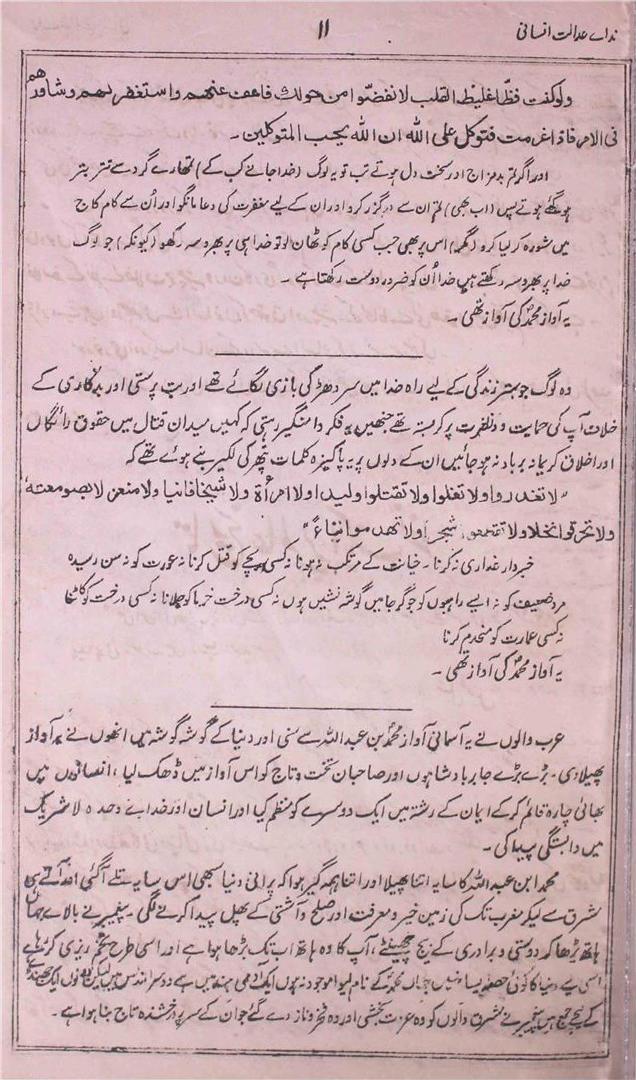 ندائے عدالت انسانی
۱۱
ولوکنت فظا غلیظ القلب لانفضّوا من حولک فاعف عنھم واستغفر لہم وشاورھم
فی الامر فاذا عزمت فتوکل علی اللہ ان اللہ یحب المتوکلین۔
اور اگر تم بدمزاج اور سخت دل ہوتے تب تو یہ لوگ (خدا جانے کب کے) تمھارے گرد سے تتر بتر
ہو گئے ہوتے پس (اب بھی) تم ان سے درگزر کرو اور ان کے لیے مغفرت کی دعا مانگو اور اُن سے کام کاج
میں مشورہ کر لیا کرو (مگر) اس پر بھی جب کسی کام کو ٹھان لو تو خدا ہی پر بھروسہ رکھو (کیونکہ) جو لوگ
خدا پر بھروسہ رکھتے ہیں خدا اُن کو ضرور دوست رکھتا ہے۔
یہ آواز محمدؐ کی آواز تھی۔
وہ لوگ جو بہتر زندگی کے لیے راہ خدا میں سر دھڑ کی بازی لگائے تھے اور بت پرستی اور بدکاری کے
خلاف آپ کی حمایت و نصرت پر کمر بستہ تھے جنھیں یہ فکر دامنگیر رہتی کہ کہیں میدان قتال میں حقوق رائگاں
اور اخلاق کریمانہ برباد نہ ہو جائیں ان کے دلوں پر یہ پاکیزہ کلمات پتھر کی لکیر بنے ہوئے تھے کہ
"لاتغدروا ولاتغلوا ولاتقتلوا ولیدا ولا امرأة ولاشیخا فانیا ولا منعزلا بصومعتہ
ولاتحرقوا نخلا ولاتقطعوا شجرا ولاتھدموا بناءً"
خبردار غداری نہ کرنا۔ خیانت کے مرتکب نہ ہونا نہ کسی بچے کو قتل کرنا نہ عورت کو نہ سن رسیدہ
مرد ضعیف کو نہ ایسے راہبوں کو جو گرجا میں گوشہ نشیں ہوں نہ کسی درخت خرما کو جلانا نہ کسی درخت کو کاٹنا
نہ کسی عمارت کو منہدم کرنا
یہ آواز محمدؐ کی آواز تھی۔
عرب والوں نے یہ آسمانی آواز محمدؐ بن عبد اللہ سے سنی اور دنیا کے گوشہ گوشہ میں انھوں نے یہ آواز
پھیلا دی۔ بڑے بڑے جابر بادشاہوں اور صاحبان تخت و تاج کو اس آواز میں ڈھک لیا، انسانوں میں
بھائی چارہ قائم کر کے ایمان کے رشتہ میں ایک دوسرے کو منظم کیا اور انسان اور خدائے وحدہ لا شریک
میں وابستگی پیدا کی۔
محمد ابن عبد اللہ کا سایہ اتنا پھیلا اور اتنا ہمہ گیر ہوا کہ پرانی دنیا سبھی اس سایہ تلے آگئی
مشرق سے لیکر مغرب تک کی زمین خیر و معرفت اور صلح و آشتی کے پھل پیدا کرنے لگی۔ پیغمبر نے بالائے جہاں
ہاتھ بڑھا کر دوستی و برادری کے بیج چھینٹے، آپ کا وہ ہاتھ اب تک بڑھا ہوا ہے اور اسی طرح تخم ریزی کر رہا ہے
اسی لیے دنیا کا کوئی حصہ ایسا نہیں جہاں محمدؐ کے نام لیوا موجود نہ ہوں ایک آدمی ہند میں ہے دوسرا اندلس میں لیکن دونوں ایک جھنڈے
کے نیچے جمع ہیں پیغمبرؐ نے مشرق والوں کو وہ عزت بخشی اور وہ فخر و ناز دے گئے جو ان کے سر پر درخشندہ تاج بنا ہوا ہے۔